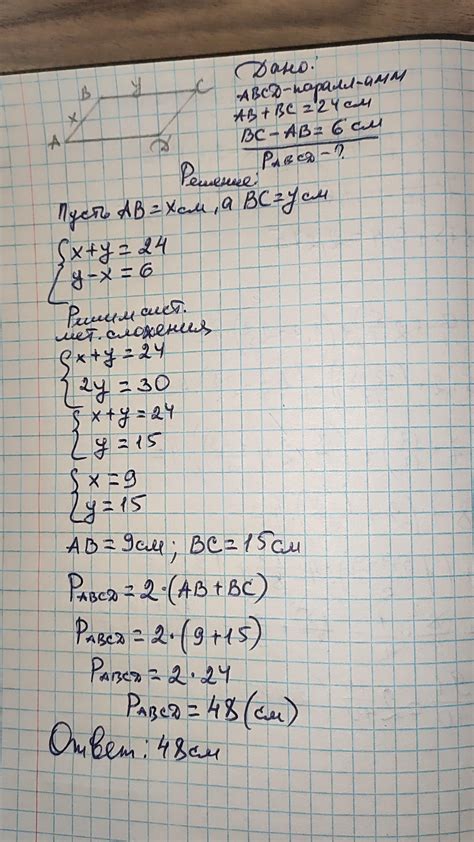 B y C
x
A D
Дано:
ABCD-паралл-амм
AB+BC=24см
BC-AB=6см
P_ABCD-?
Решение:
Пусть AB=xсм, а BC=yсм
{x+y=24
{y-x=6
Решим сист.
мет. сложения
{x+y=24
{2y=30
{x+y=24
{y=15
{x=9
{y=15
AB=9см; BC=15см
P_ABCD=2·(AB+BC)
P_ABCD=2·(9+15)
P_ABCD=2·24
P_ABCD=48(см)
Ответ: 48см